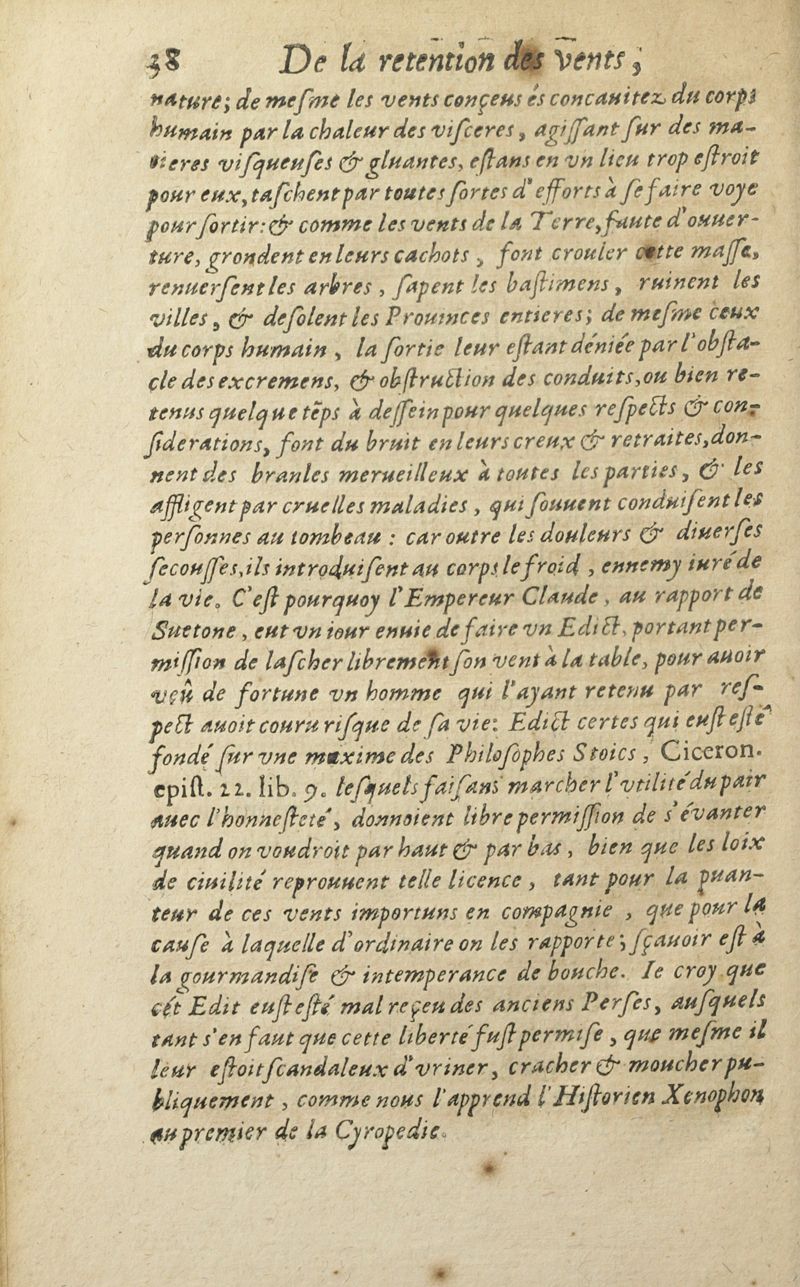 38 De la retention des vents,
nature; de mesme les vents conçeus és concauitez du corps
humain par la chaleur des visceres, agissant sur des ma-
tieres visqueuses & gluantes, estans en vn lieu trop estroit
pour eux, taschent par toutes sortes d'efforts à se faire voye
pour sortir: & comme les vents de la Terre, faute d'ouuer-
ture, grondent en leurs cachots, font crouler cette masse,
renuersent les arbres, sapent les bastimens, ruinent les
villes, & desolent les Prouinces entieres; de mesme ceux
du corps humain, la sortie leur estant déniée par l'obsta-
cle des excremens, & obstruction des conduits, ou bien re-
tenus quelque tẽps à dessein pour quelques respects & con-
siderations, font du bruit en leurs creux & retraites, don-
nent des branles merueilleux à toutes les parties, & les
affligent par cruelles maladies, qui souuent conduisent les
personnes au tombeau : car outre les douleurs & diuerses
secousses, ils introduisent au corps le froid, ennemy iuré de
la vie. C'est pourquoy l'Empereur Claude, au rapport de
Suetone, eut vn iour enuie de faire vn Edict, portant per-
mission de lascher librement son vent à la table, pour auoir
veû de fortune vn homme qui l'ayant retenu par res-
pect auoit couru risque de sa vie: Edict certes qui eust esté
fondé sur vne maxime des Philosophes Stoics, Ciceron.
epist. 22. lib. 9. lesquels faisans marcher l'vtilité du pair
auec l'honnesteté, donnoient libre permission de s'évanter
quand on voudroit par haut & par bas, bien que les loix
de ciuilité reprouuent telle licence, tant pour la puan-
teur de ces vents importuns en compagnie, que pour la
cause à laquelle d'ordinaire on les rapporte; sçauoir est à
la gourmandise & intemperance de bouche. Ie croy que
cét Edit eust esté mal reçeu des anciens Perses, ausquels
tant s'en faut que cette liberté fust permise, que mesme il
leur estoit scandaleux d'vriner, cracher & moucher pu-
bliquement, comme nous l'apprend l'Historien Xenophon
au premier de la Cyropedie.